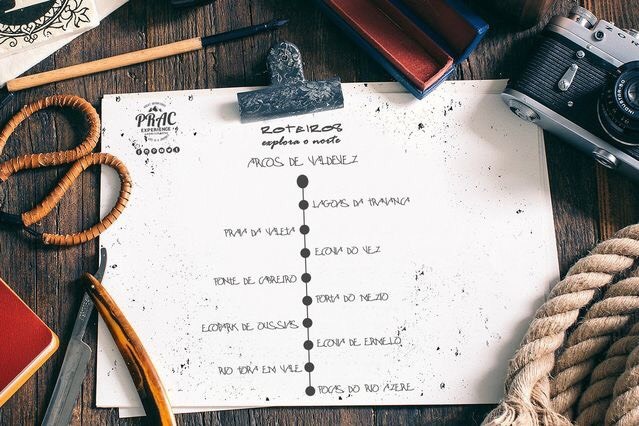 PRAC
EXPERIENCE
ROTEIROS
explora o norte
ARCOS DE VALDEVEZ
LAGOAS DA TRAVANCA
PRAIA DA VALETA
ECOVIA DO VEZ
PONTE DE CABREIRO
PORTA DO MEZIO
ECOPARK DE OUSSIAS
ECOVIA DE ERMELO
RIO TORA EM VALE
POÇAS DO RIO AZERE